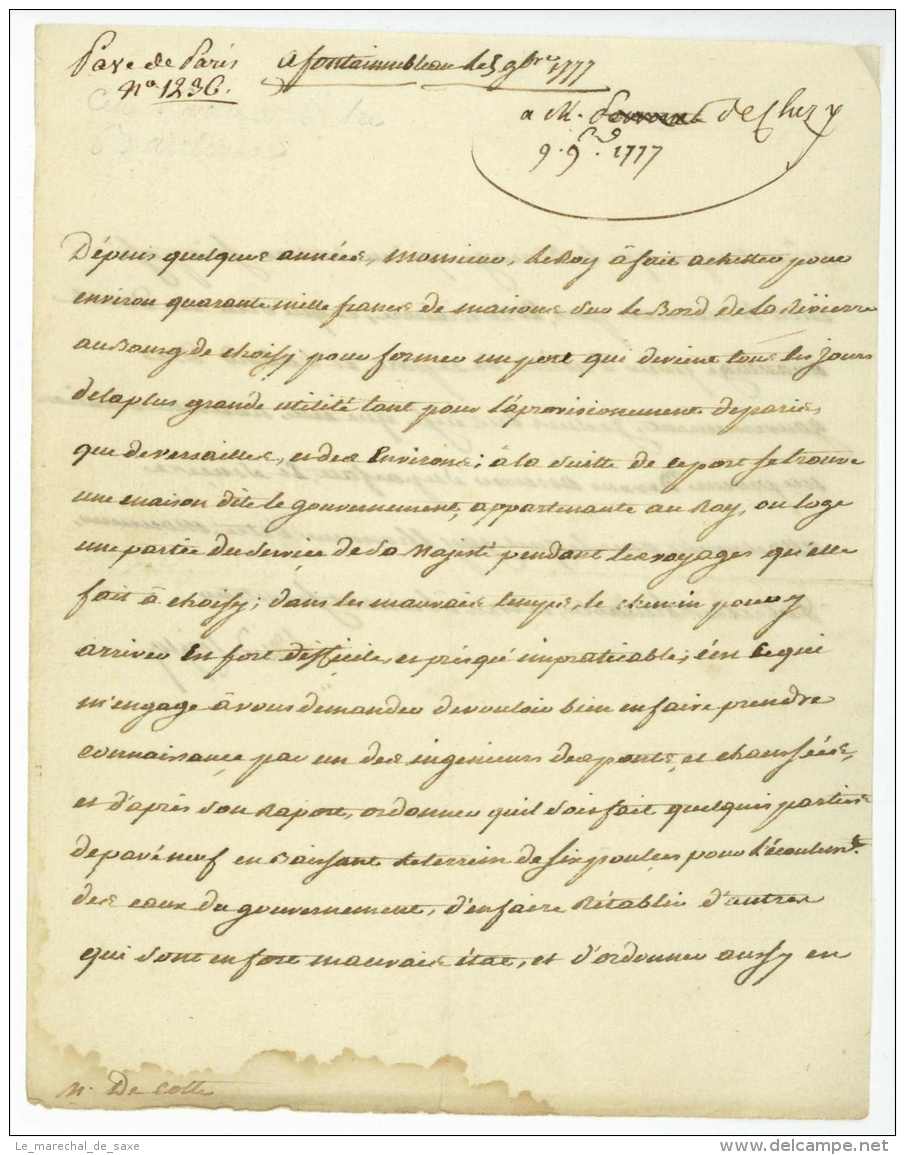 Pavé de Paris
N.º 1236.
a fontainebleau le 5 9bre 1777
a M. de Chezy
9. 9bre. 1777
Dépuis quelques années, Monsieur, le Roy à fait achetter pour
environ quarante mille francs de maisons sur le Bord de la Rivierre
au Bourg de choisy pour former un port qui devient tous les jours
de la plus grande utilité tant pour l'aprovisionement de paris,
que de versailles, et des Environs; à la suitte de ce port se trouve
une maison dite le gouvernement, appartenante au Roy, ou loge
une partie du service de Sa Majesté pendant les voyages qu'elle
fait à choisy; dans les mauvais temps, le chemin pour y
arriver En fort difficile, et présqué impraticable; c'en Ce qui
m'engage à vous demander de vouloir bien en faire prendre
connaissance par un des ingenieurs des ponts, et chaussées,
et d'après son Raport, ordonner qu'il soit fait quelques parties
de pavé neuf en Baissant le terrein de six pouces pour l'écoulemt.
des eaux du gouvernement, d'en faire Rétablir d'autres
qui sont en fort mauvais état, et d'ordonner aussy en
M. De Cotte
Le_marechal_de_saxe
www.delcampe.net